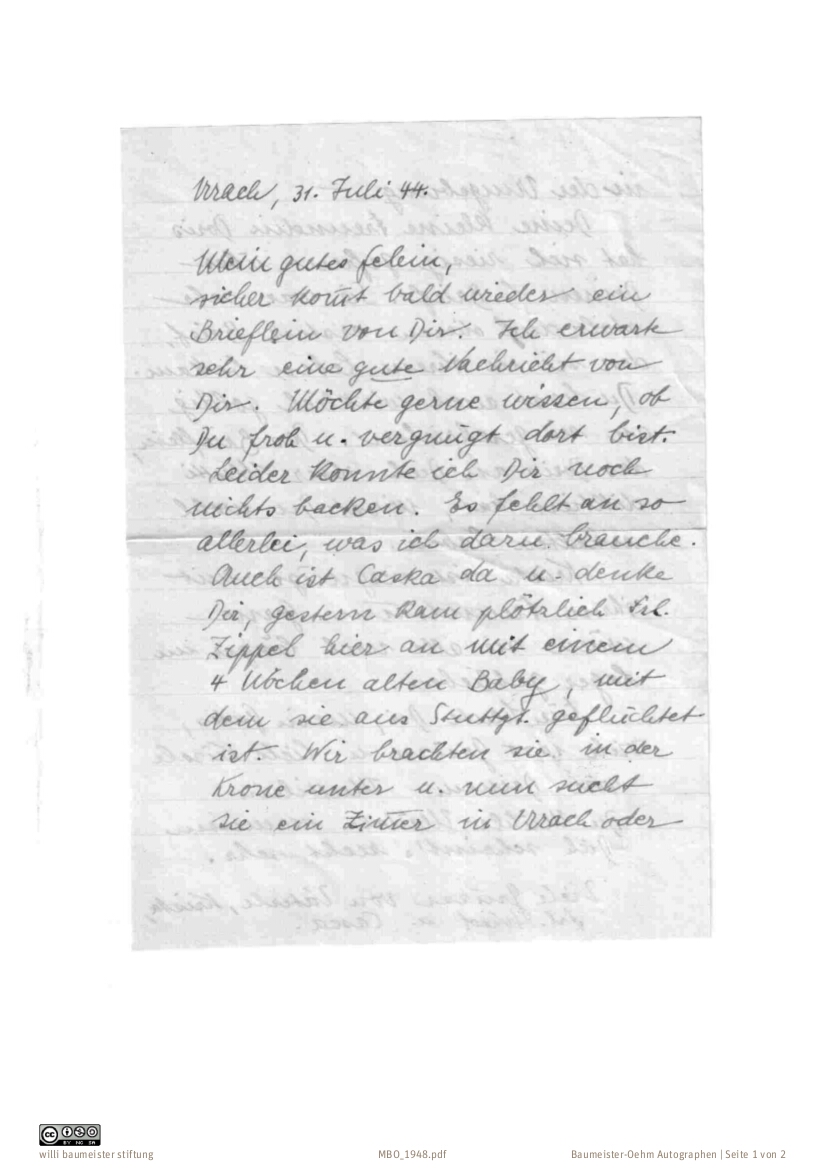 Urach, 31. Juli 44.
Mein gutes felein,
sicher kom̄t bald wieder ein
Brieflein von Dir. Ich erwarte
sehr eine gute Nachricht von
Dir. Möchte gerne wissen, ob
Du froh u. vergnügt dort bist.
Leider konnte ich Dir noch
nichts backen. Es fehlt an so
allerlei, was ich dazu brauche.
Auch ist Caska da u. denke
Dir, gestern kam plötzlich Frl.
Zippel hier an mit einem
4 Wochen alten Baby, mit
dem sie aus Stuttgt. geflüchtet
ist. Wir brachten sie in der
Krone unter u. nun sucht
sie ein Zim̄er in Urach oder
cc BY NC SA
willi baumeister stiftung
MBO_1948.pdf
Baumeister-Oehm Autographen | Seite 1 von 2